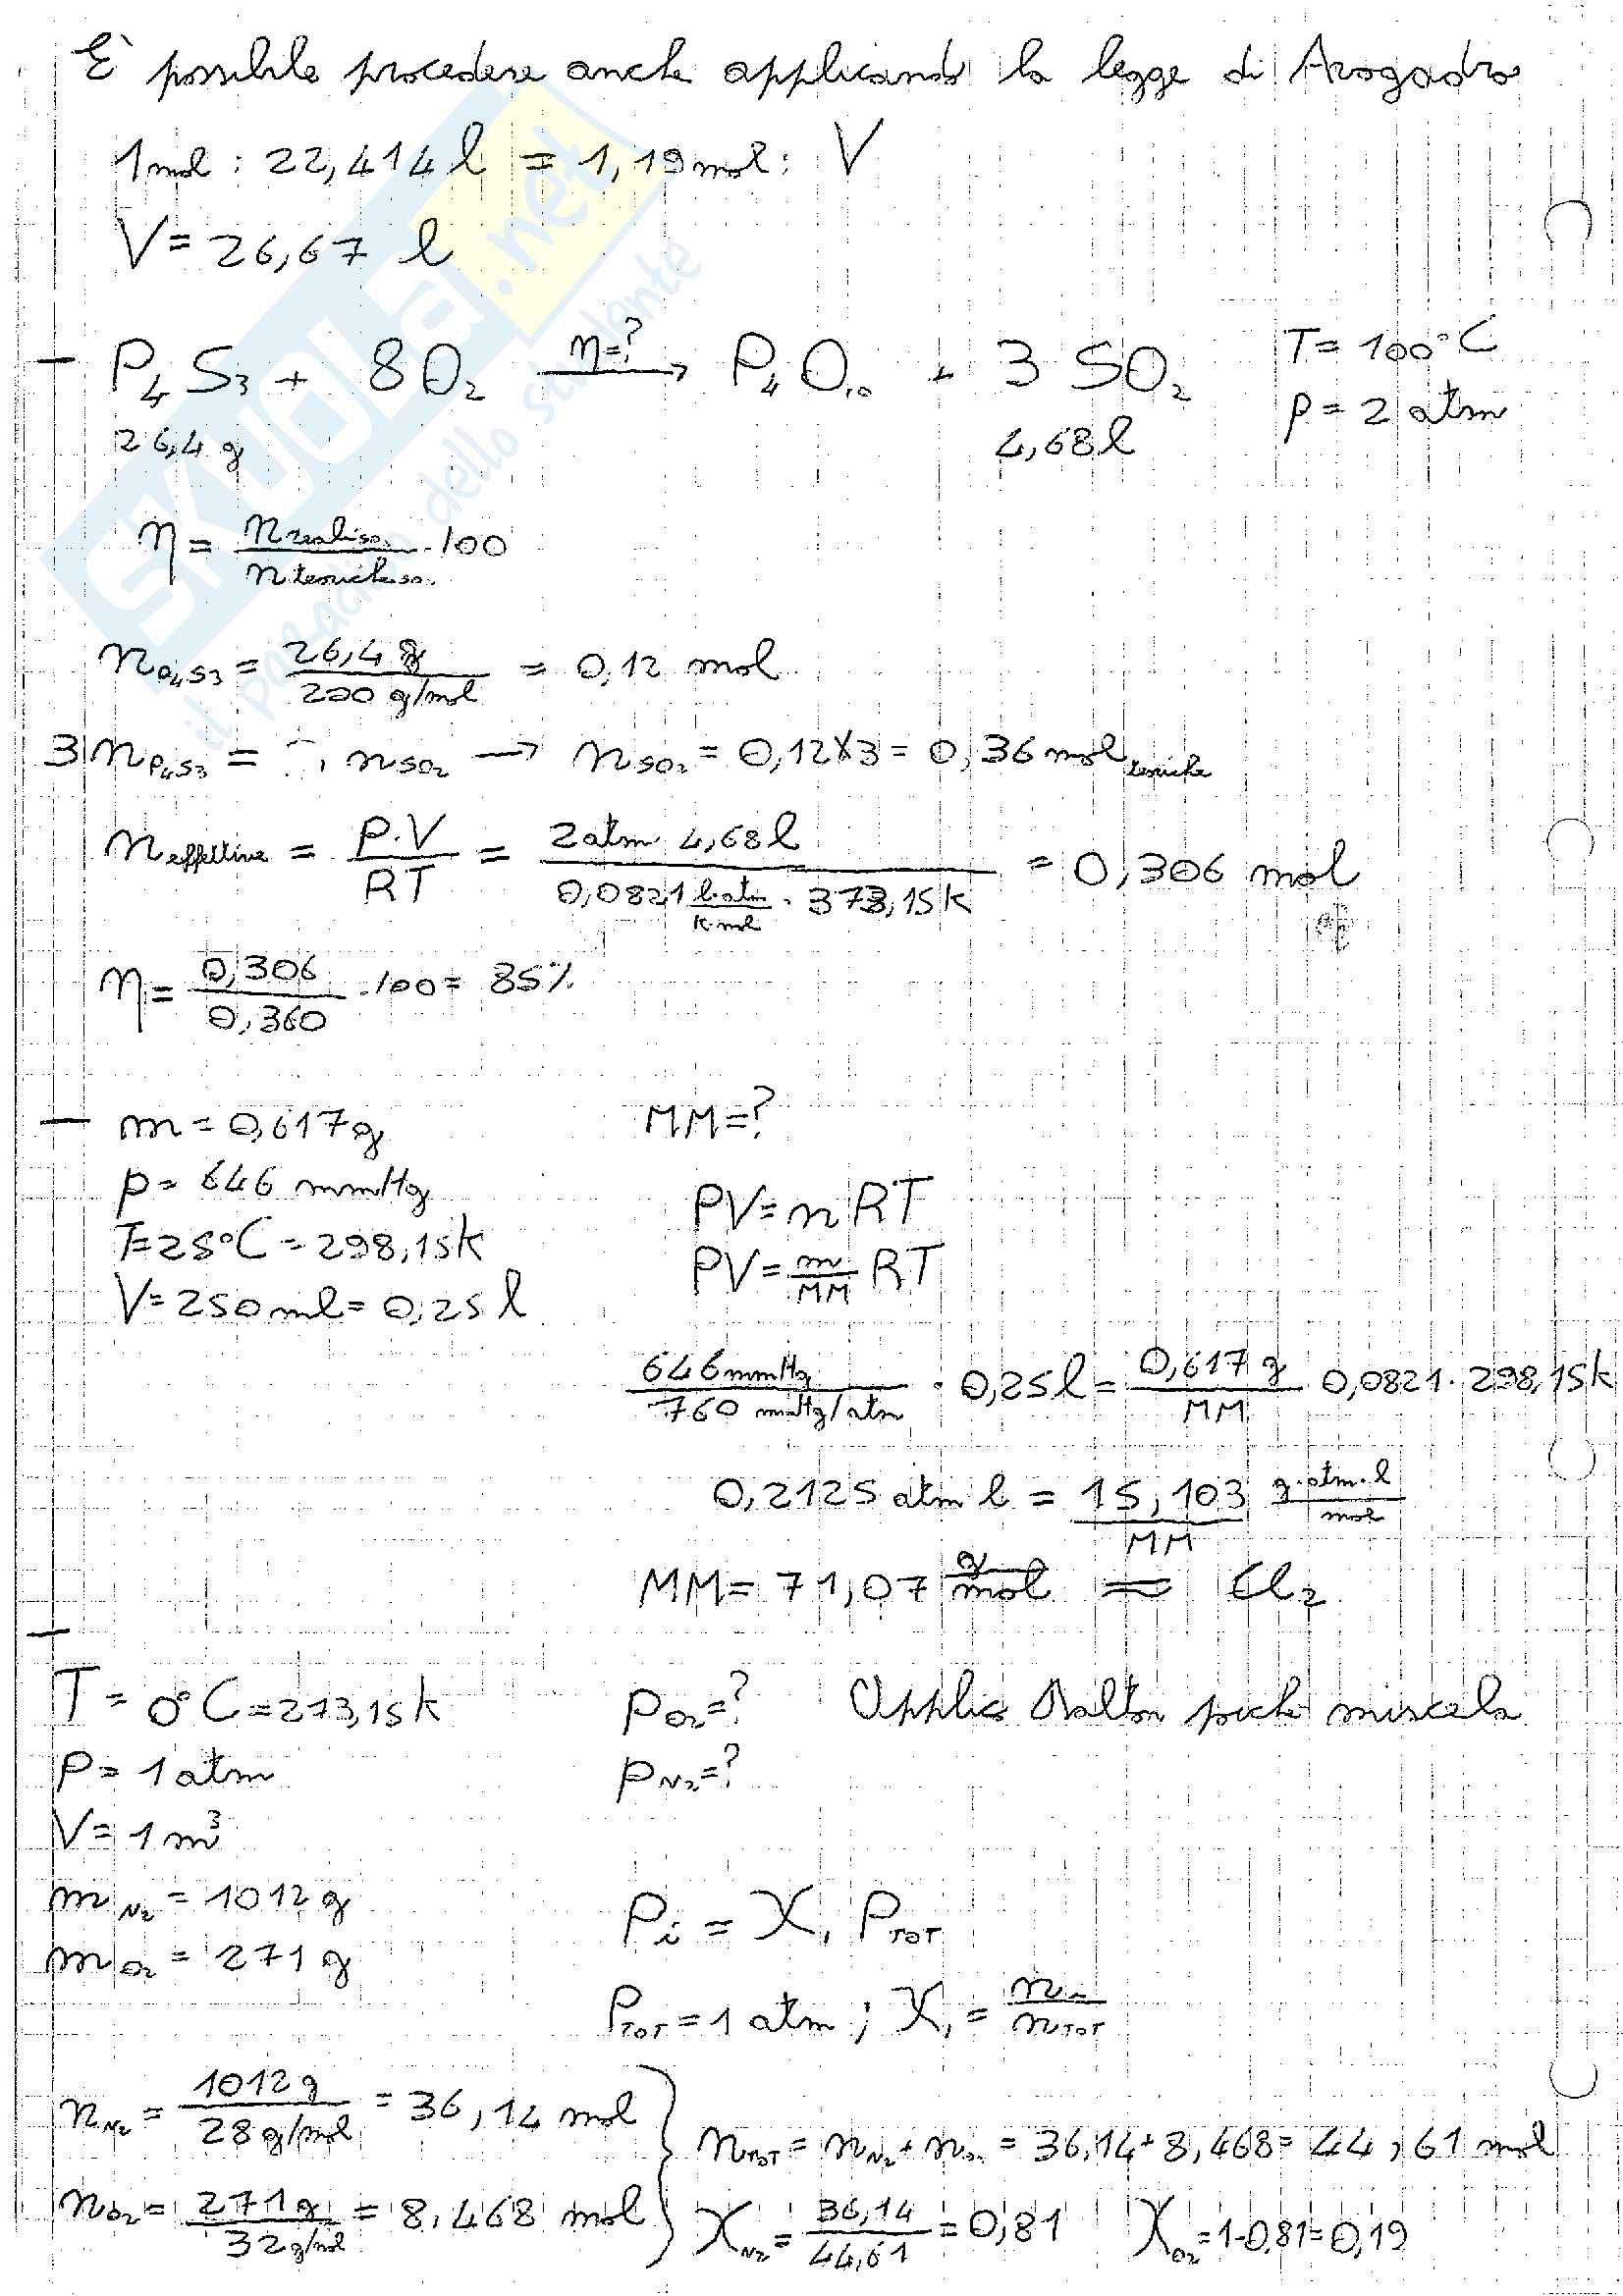 È possibile procedere anche applicando la legge di Avogadro
1 mol : 22,414 l = 1,19 mol : V
V = 26,67 l
- P4S3 + 8O2 → P4O10 + 3 SO2
η=?
T = 100°C
p = 2 atm
26,4 g
4,68 l
η = n reali SO2 / n teoriche SO2 · 100
nP4S3 = 26,4 g / 220 g/mol = 0,12 mol
3 nP4S3 = nSO2 → nSO2 = 0,12 x 3 = 0,36 mol teoriche
n effettive = P·V / RT = 2 atm 4,68 l / 0,0821 l·atm / K·mol · 373,15 K = 0,306 mol
η = 0,306 / 0,360 · 100 = 85%
- m = 0,617 g
MM = ?
p = 646 mmHg
T = 25°C = 298,15 K
V = 250 ml = 0,25 l
PV = nRT
PV = m / MM RT
646 mmHg / 760 mmHg/atm · 0,25 l = 0,617 g / MM 0,0821 · 298,15 K
0,2125 atm l = 15,103 / MM g·atm·l / mol
MM = 71,07 g / mol = Cl2
-
T = 0°C = 273,15 K
P = 1 atm
V = 1 m³
mN2 = 1012 g
mO2 = 271 g
pO2 = ? Applico Dalton poiché miscela
pN2 = ?
Pi = Xi PTOT
PTOT = 1 atm ; Xi = ni / nTOT
nN2 = 1012 g / 28 g/mol = 36,14 mol
nO2 = 271 g / 32 g/mol = 8,468 mol
nTOT = nN2 + nO2 = 36,14 + 8,468 = 44,61 mol
XN2 = 36,14 / 44,61 = 0,81 XO2 = 1-0,81 = 0,19
SKUOLa.net
il paradiso dello studente